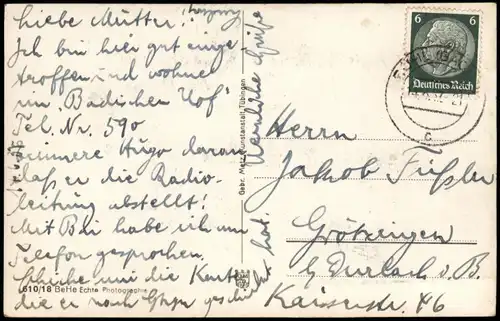 Liebe Mutter!
Ich bin hier gut einge
troffen und wohne
im "Badischen Hof"
Tel. Nr. 590
Erinnere Hugo daran
daß er die Radio-
leitung abstellt!
Mit Bai habe ich am
Telefon gesprochen.
Schicke mir die Karte
die er nach geschickt hat.
Herzliche Grüße
610/18 BeHe Echte Photographie
Gebr. Metz, Kunstanstalt, Tübingen
6 6
Deutsches Reich
c
Herrn
Jakob Füßler
Grötzingen
b/ Durlach i. B.
Kaiserstr. 46